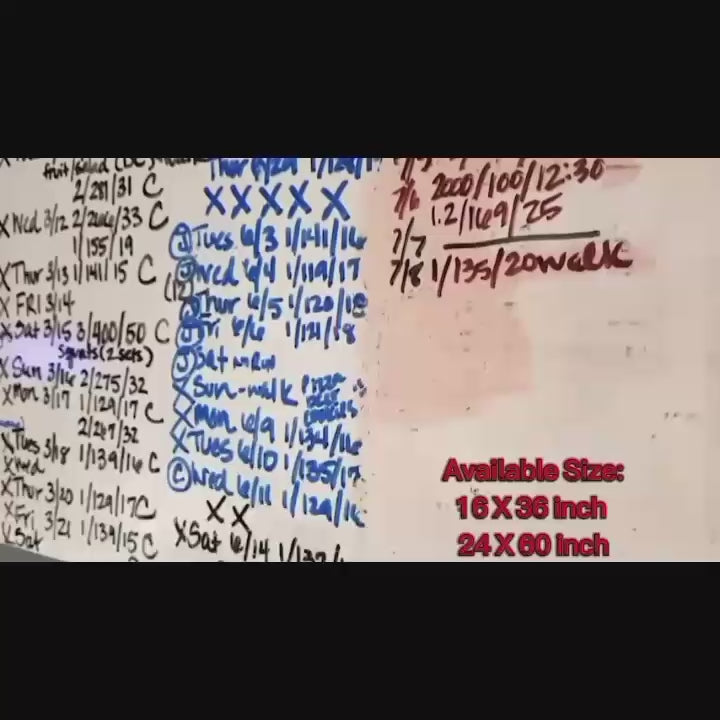 fruit/salad
2/281/31 C
X Wed 3/12 2/266/33 C
1/155/19
X Thur 3/13 1/141/15 C
X FRI 3/14
X Sat 3/15 3/400/50 C
squats (2 sets)
X Sun 3/16 2/275/32
X Mon 3/17 1/129/17 C
2/247/32
X Tues 3/18 1/139/16 C
X Wed
X Thur 3/20 1/129/17 C
X Fri 3/21 1/139/15 C
X Sat
Thur
X X X X X
Tues 6/3 1/141/16
Wed 6/4 1/119/17
(12)
Thur 6/5 1/120/18
Fri 6/6 1/121/18
Sat
X Sun-walk pizza
cookies
X Mon 6/9 1/134/16
X Tues 6/10 1/135/17
C Wed 6/11 1/129/16
X X
X Sat 6/14 1/137/
7/6 2000/100/12:30
1.2/169/25
7/7
7/8 1/135/20 walk
Available Size:
16 X 36 inch
24 X 60 inch